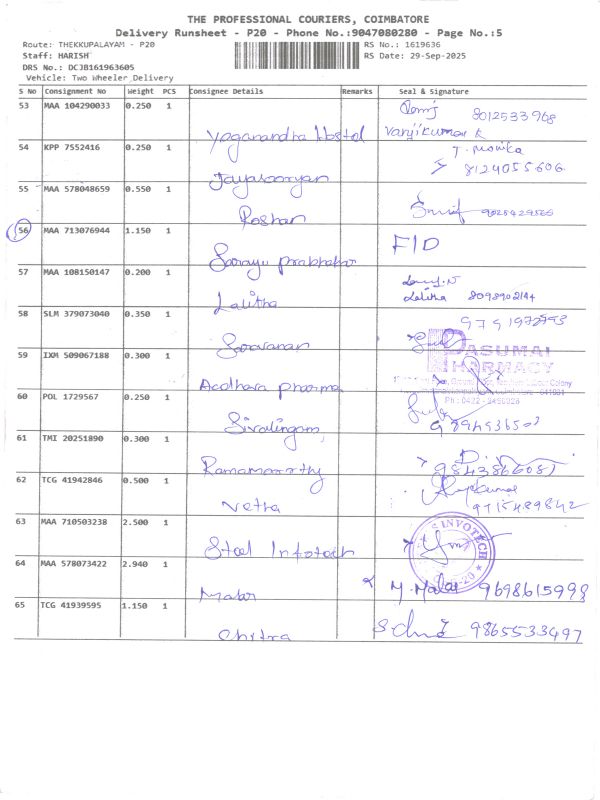 THE PROFESSIONAL COURIERS, COIMBATORE
Delivery Runsheet - P20 - Phone No.:9047080280 - Page No.:5
Route: THEKKUPALAYAM - P20 RS No.: 1619636
Staff: HARISH RS Date: 29-Sep-2025
DRS No.: DCJB161963605
Vehicle: Two Wheeler Delivery
S No Consignment No Weight PCS Consignee Details Remarks Seal & Signature
53 MAA 104290033 0.250 1 8012533968
Yoganandha Hostel Vanjikumar K
54 KPP 7552416 0.250 1 T. Monika
Jayasooryan 8124055606
55 MAA 578048659 0.550 1
Roshan
56 MAA 713076944 1.150 1 F/D
Sarayu prabhakar
57 MAA 108150147 0.200 1
Lalitha Lalitha 8098902144
58 SLM 379073040 0.350 1
Saravanan
59 IXM 509067188 0.300 1 PASUMAI
PHARMACY
Aadhava pharma
60 POL 1729567 0.250 1
Sivalingam
61 TMI 20251890 0.300 1
Ramamoorthy
62 TCG 41942846 0.500 1
Netha 9715489842
63 MAA 710503238 2.500 1 INVOTECH
Steel Infotech
64 MAA 578073422 2.940 1
Malar M. Malar 9698615998
65 TCG 41939595 1.150 1
Chitra 9865533497